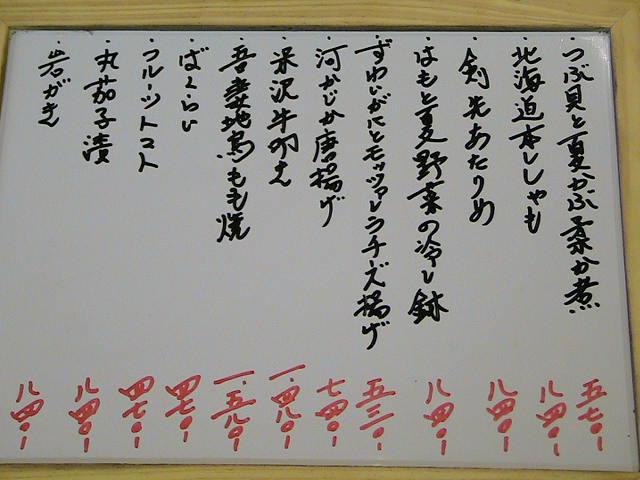 ・つぶ貝と夏かぶ柔か煮 五七〇ー
・北海道本ししゃも 八四〇ー
・剣先あたりめ 八四〇ー
・はもと夏野菜の冷し鉢 八四〇ー
・ずわいがにとモッツァレラチーズ揚げ 五三〇ー
・河かじか唐揚げ 七四〇ー
・米沢牛叩き 一.四八〇ー
・吾妻地鳥もも焼 一.五八〇ー
・ばくらい 四七〇ー
・フルーツトマト 四七〇ー
・丸茄子漬 八四〇ー
・岩がき 八四〇ー